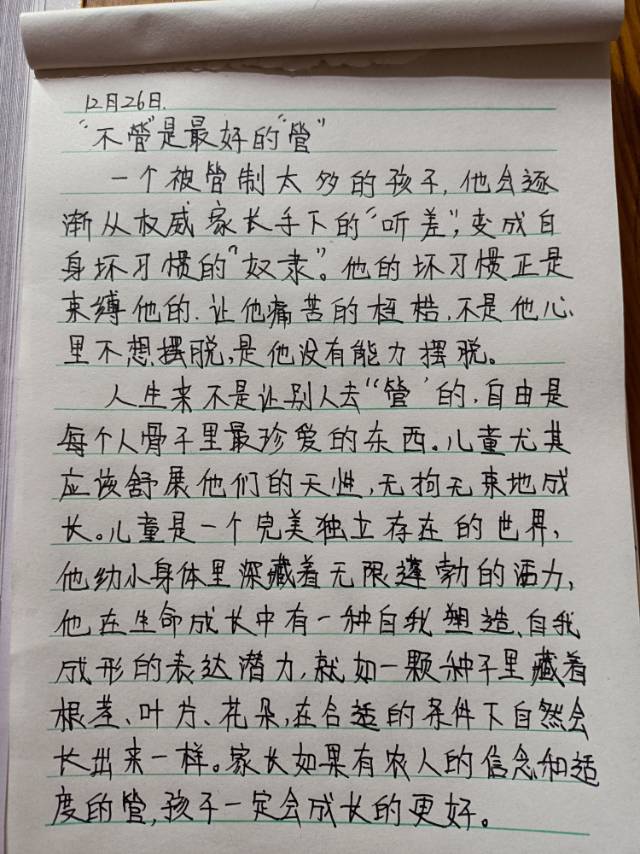 12月26日.
“不管”是最好的“管”
一个被管制太多的孩子,他会逐
渐从权威家长手下的“听差”,变成自
身坏习惯的“奴隶”。他的坏习惯正是
束缚他的.让他痛苦的桎梏,不是他心
里不想摆脱,是他没有能力摆脱。
人生来不是让别人去“管”的.自由是
每个人骨子里最珍爱的东西。儿童尤其
应该舒展他们的天性,无拘无束地成
长。儿童是一个完美独立存在的世界,
他幼小身体里深藏着无限蓬勃的活力,
他在生命成长中有一种自我塑造、自我
成形的表达潜力,就如一颗种子里藏着
根茎、叶片、花朵,在合适的条件下自然会
长出来一样。家长如果有农人的信念和适
度的管,孩子一定会成长的更好。